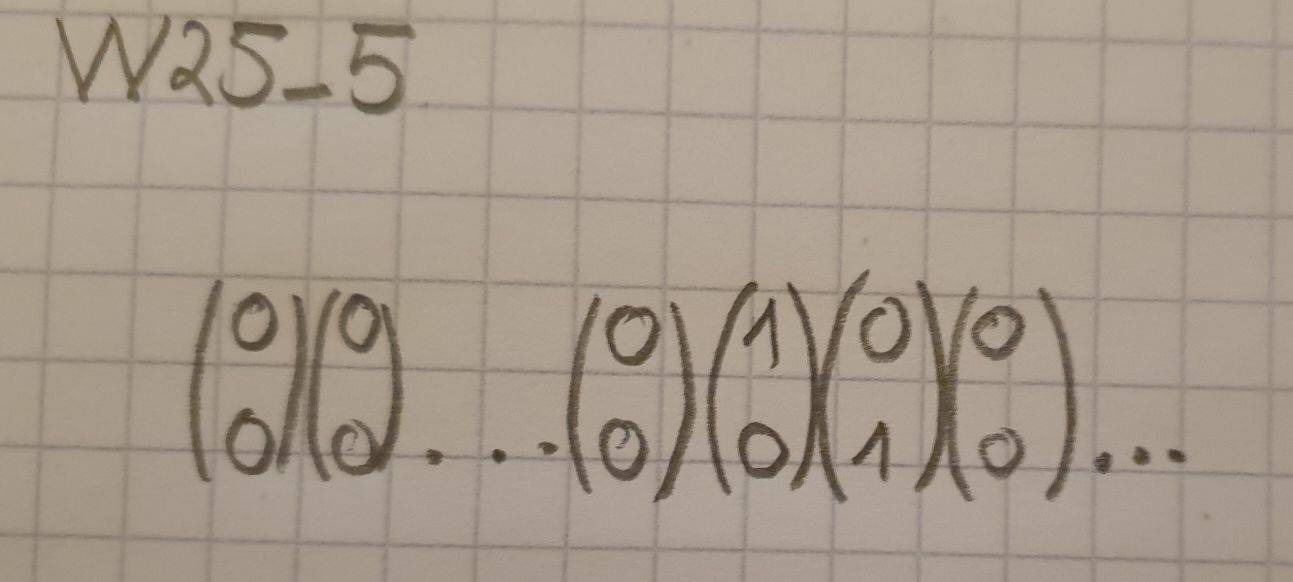 W25-5
(0 0)(0 0)...(0 0)(1 0)(0 1)(0 0)...